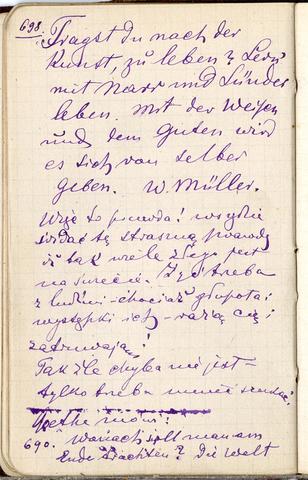 698. Fragst du nach der
Kunst, zu leben? Lern'
mit Narr und Sünder
leben. Mit den Weisen
und dem Guten wird
es sich von selber
geben. W. Müller.
to prawda! wszędzie
tę straszną prawdę
iż tak wiele złego jest
na świecie. Żyć trzeba
z ludźmi - chociaż głupota i
występki ich - rażą cię i
zatruwają!
Tak źle chyba nie jest -
tylko trzeba umieć szukać!
Goethe mówi:
690. Wonach soll man am
Ende trachten? Die Welt